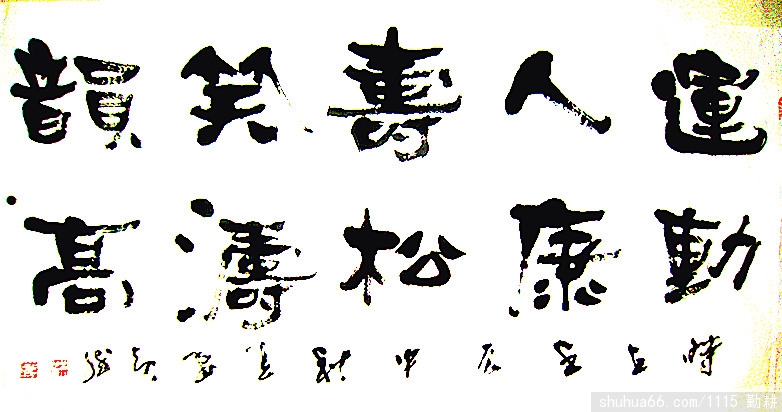 運動
人康
壽松
笑濤
韻高
時在壬辰中秋
shuhua66.com/1115 勤耕